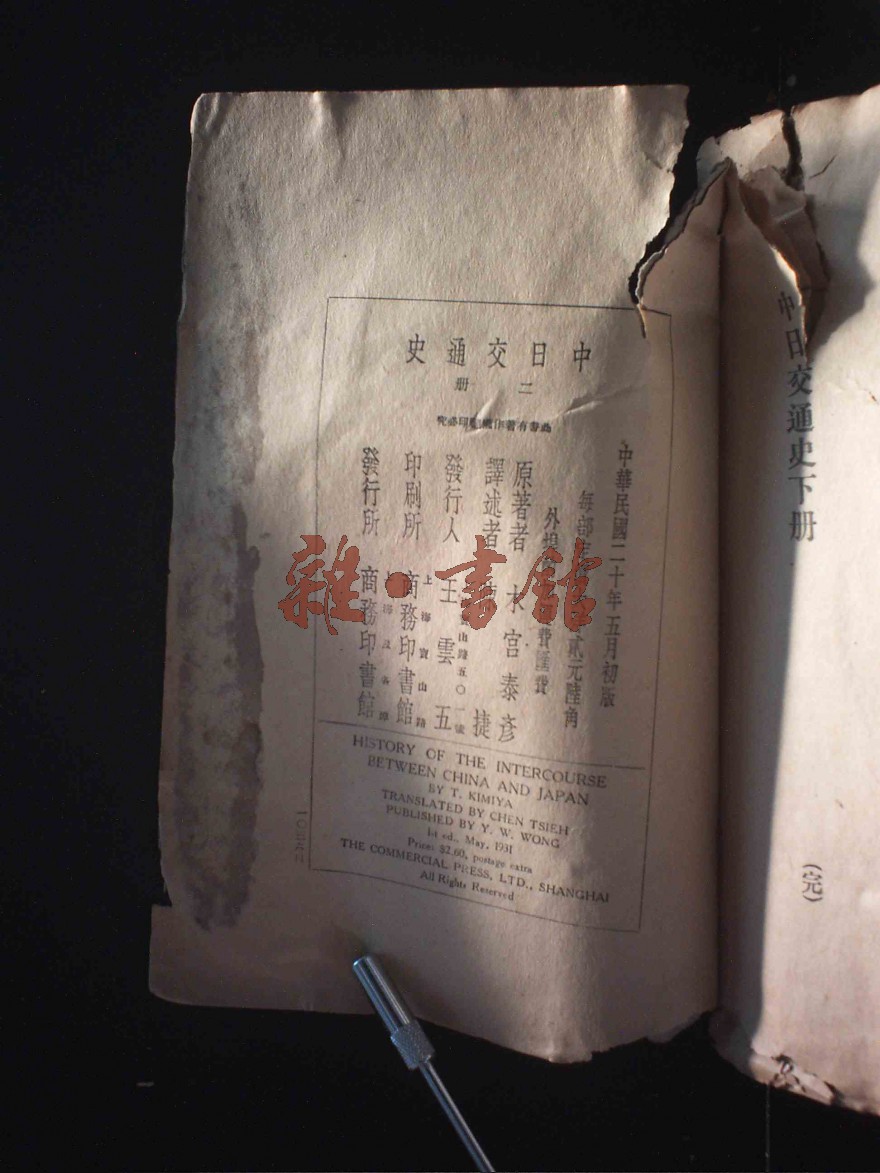 中日交通史
二册
中華民國二十年五月初版
貳元陸角
費匯費
原著者 木宮泰彥
譯述者 捷
發行人 王雲五
山路五〇一號
印刷所 商務印書館
上海寶山路
發行所 商務印書館
HISTORY OF THE INTERCOURSE
BETWEEN CHINA AND JAPAN
BY T. KIMIYA
TRANSLATED BY CHEN TSIEH
PUBLISHED BY Y. W. WONG
1st ed., May, 1931
Price: $2.60, postage extra
THE COMMERCIAL PRESS, LTD., SHANGHAI
All Rights Reserved
中日交通史下册
(完)
雜·書館